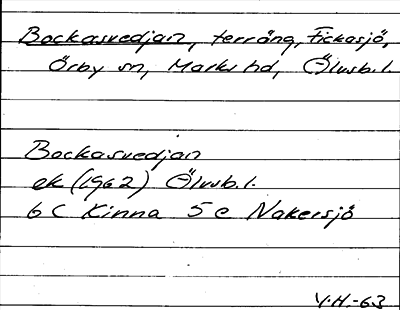 Bockasvedjan, terräng, Fickasjö,
Örby sn, Marks hd, Älvsb. l.
Bockasvedjan
ek (1962) Älvsb. l.
6 C Kinna 5 e Nakersjö
V.H.-63